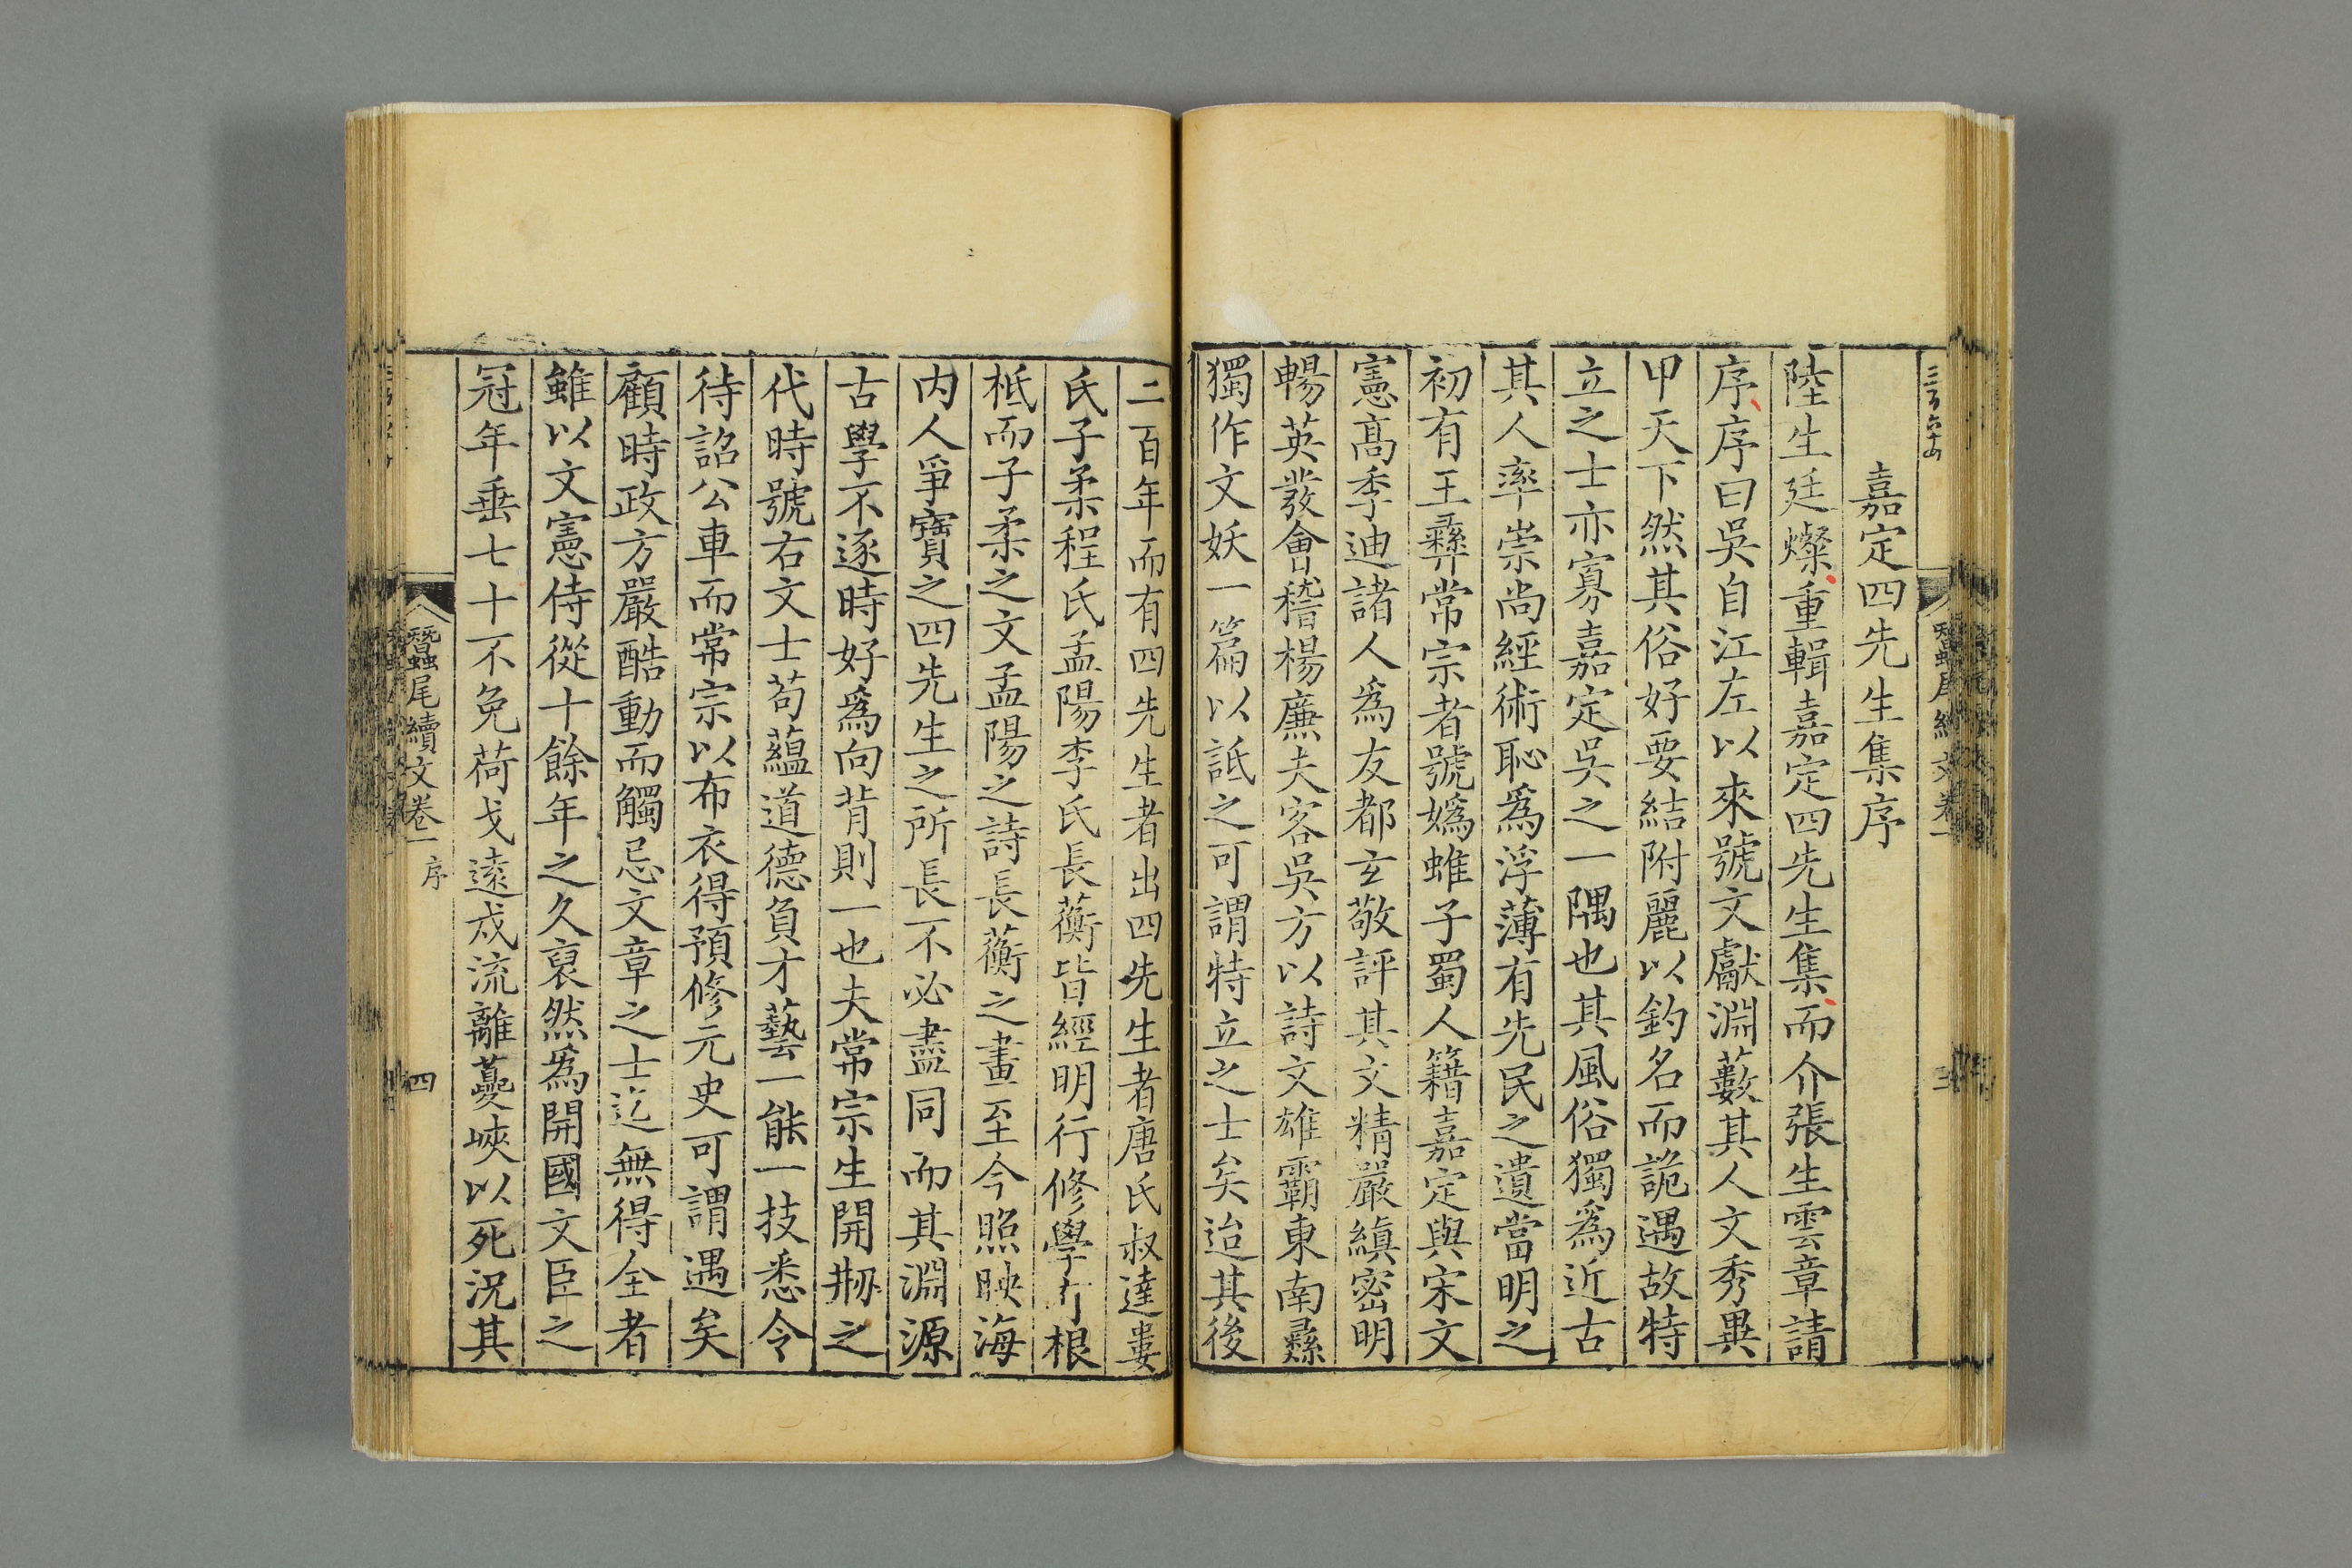 嘉定四先生集序
陸生廷燦重輯嘉定四先生集而介張生雲章請
序序曰吳自江左以來號文獻淵藪其人文秀異
甲天下然其俗好要結附麗以釣名而詭遇故特
立之士亦寡嘉定吳之一隅也其風俗獨爲近古
其人率崇尚經術恥爲浮薄有先民之遺當明之
初有王彝常宗者號嬀蜼子蜀人籍嘉定與宋文
憲高季迪諸人爲友都玄敬評其文精嚴縝密明
暢英發會稽楊廉夫客吳方以詩文雄霸東南彝
獨作文妖一篇以詆之可謂特立之士矣迨其後
二百年而有四先生者出四先生者唐氏叔達婁
氏子柔程氏孟陽李氏長蘅皆經明行修學有根
柢而子柔之文孟陽之詩長蘅之畫至今照映海
内人爭寶之四先生之所長不必盡同而其淵源
古學不逐時好爲向背則一也夫常宗生開刱之
代時號右文士苟蘊道德負才藝一能一技悉令
待詔公車而常宗以布衣得預修元史可謂遇矣
顧時政方嚴酷動而觸忌文章之士迄無得全者
雖以文憲侍從十餘年之久裒然爲開國文臣之
冠年垂七十不免荷戈遠戍流離夔峽以死況其
蠶尾續文卷一 序
四